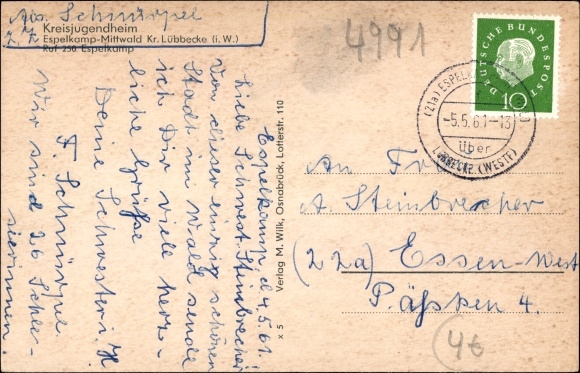 Abs. Schnürpel
z. Zt. Kreisjugendheim
Espelkamp-Mittwald Kr. Lübbecke (i. W.)
Ruf 250 Espelkamp
4991
DEUTSCHE BUNDESPOST
10
(21a) ESPELKAMP
-5.5.61-13
über
LÜBBECKE (WESTF)
Espelkamp, d. 4.5.61.
Liebe Schwest. Steinbrecher
Von dieser einzig schönen
Stadt im Wald sende
ich Dir viele herz-
liche Grüße
Deine Schwester i. H.
F. Schnürpel.
Wir sind 26 Schle-
sierinnen.
Verlag M. Wilk, Osnabrück, Lotterstr. 110
x 5
An Fr
A. Steinbrecher
(22a) Essen-West
Päßken 4.
4€